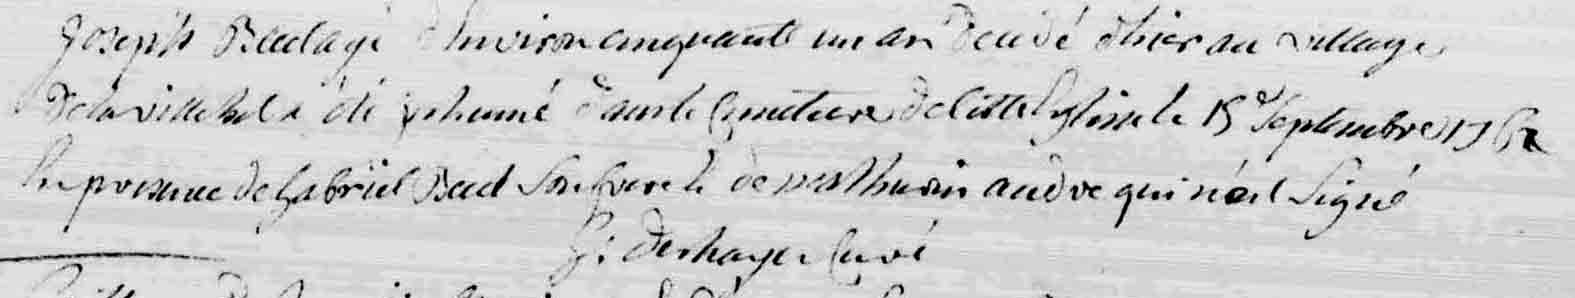 Joseph Read agé d'Environ cinquante un an decedé d'hier au village
de la ville hel a été inhumé dans le Cymetiere de Cette Eglise le 15e Septembre 176
En presence de Gabriel Read Son frere & de mathurin andre qui n'ont Signé
G: deshayes Curé